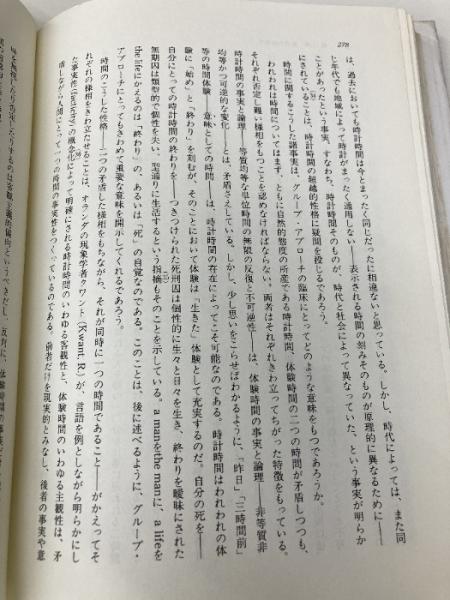 278
は、過去においても時計時間は今とまったく同じだったに相違ないと思っている。しかし、時代によっては、また同
じ年代でも地域によって時計がまったく通用しない――表示される時間の刻みそのものが原理的に異なるために――
ことがあったという事実、すなわち、時計時間そのものが、時代と社会によって異なっていた、という事実が明らか
にされていることは、時計時間の超越的性格に疑問を投じるであろう。
時間に関するこうした諸事実は、グループ・アプローチの臨床にとってどのような意味をもつであろうか。
われわれは時間についてはまず、ともに自然的態度の所産である時計時間、体験時間の二つの時間が矛盾しつつも、
それぞれ否定し難い様相をもつことを認めなければならない。両者はそれぞれきわ立ってちがった特徴をもっている。
時計時間の事実と論理――等質均等な単位時間の無限の反復と不可逆性――は、体験時間の事実と論理――非等質非
均等かつ可逆的な変化――とは、矛盾さえしている。しかし、少し思いをこらせばわかるように、「昨日」「三時間前」
等の時間体験――意味としての時間――は、時計時間の存在によってこそ可能なのである。時計時間はわれわれの体
験に「始め」と「終わり」を刻むが、そのことにおいて体験は「生きた」体験として充実するのだ。自分の死を――
自分にとっての時計時間の終わりを――つきつけられた死刑囚は個性的に生々と日々を生き、終わりを曖昧にされた
無期囚は類型的で個性を失い、型通りに生活するという指摘もそのことを示している。a manをthe manに、a lifeを
the lifeにかえるのは、「終わり」の、あるいは、「死」の自覚なのである。このことは、後に述べるように、グループ・
アプローチにとってもきわめて重要な意味を開示してくれるであろう。
時間のこうした性格――二つの矛盾した様相をもちながら、それが同時に一つの時間であること――がかえってそ
れぞれの様相をきわ立たせることは、オランダの現象学者クワント(Kwant, R.)が、言語を例としながら明らかにし
た事実性(facticity)の概念化によって明確にされる。時計時間のいわゆる客観性と、体験時間のいわゆる主観性は、矛
盾しながら人間にとって一つの時間の事実性をつくっているのである。前者だけを現実的とみなし、後者の事実や意